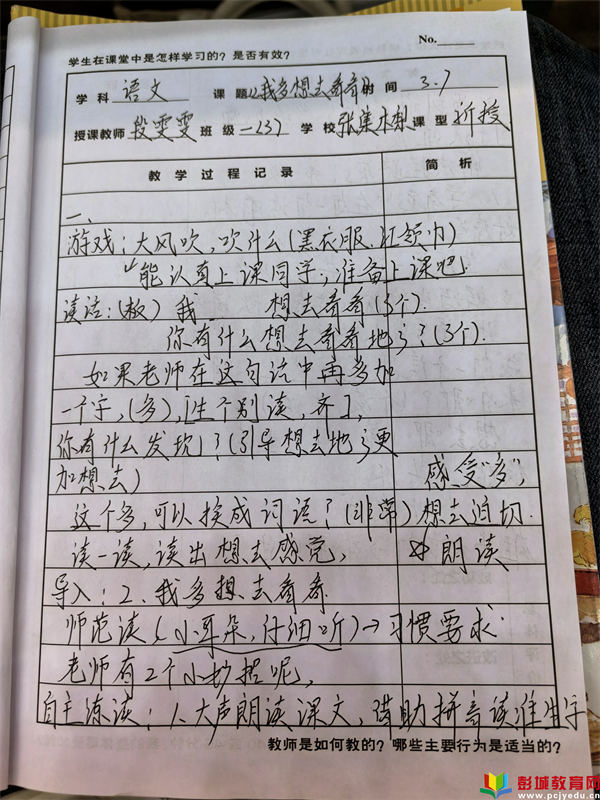 No.
学生在课堂中是怎样学习的？是否有效？
学科 语文 课题《我多想去看看》时间 3.7
授课教师 段雯雯 班级 一(3) 学校 张集 课型 新授
教学过程记录 简析
一、
游戏：大风吹，吹什么（黑衣服、红领巾）
能认真上课同学，准备上课吧.
读话：(板) 我 想去看看(3个).
你有什么想去看看地方？(3个).
如果老师在这句话中再多加
一个字，(多)，[生个别读，齐]，
你有什么发现？(引导想去地方更
加想去) 感受“多”，
这个多，可以换成词语？(非常) 想去迫切.
读一读，读出想去感觉， 朗读
导入：2、我多想去看看
师范读（小耳朵，仔细听）→习惯要求.
老师有2个小妙招呢，
自主练读：1、大声朗读课文，借助拼音读准生字
教师是如何教的？哪些主要行为是适当的？
彭城教育网
www.pcjyedu.cn